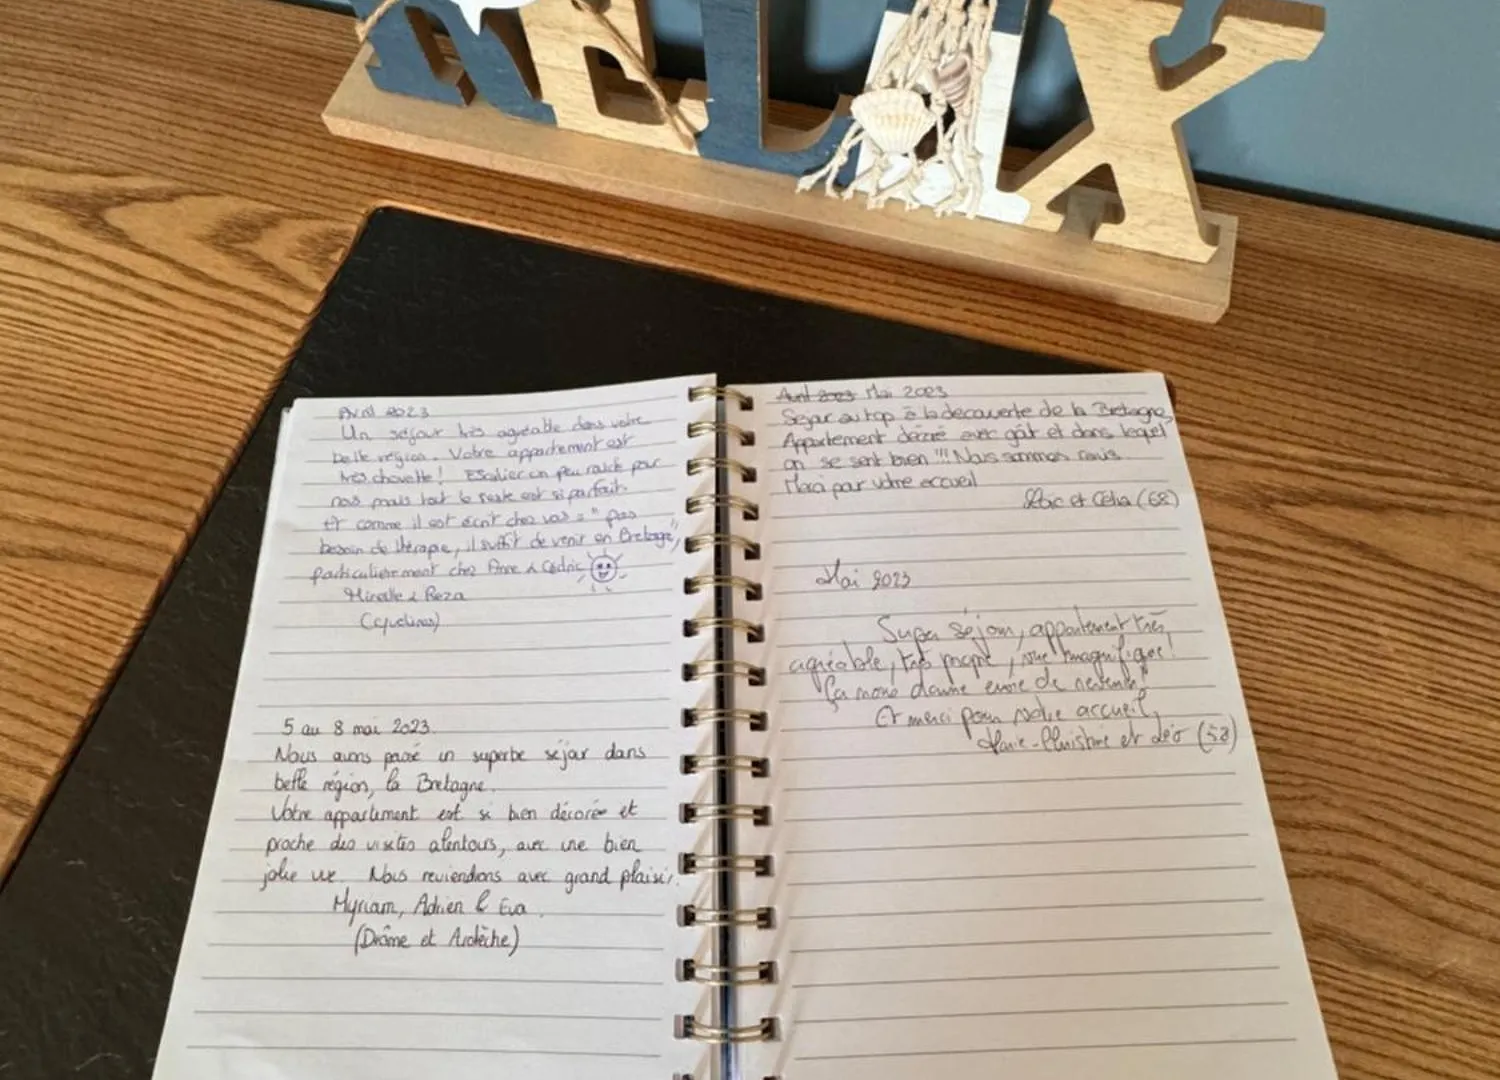 RELAX
Avril 2023
Un séjour très agréable dans votre
belle région. Votre appartement est
très chouette ! Escalier un peu raide pour
nous mais tout le reste est si parfait.
Et comme il est écrit chez vous : " pas
besoin de thérapie, il suffit de venir en Bretagne",
particulièrement chez Anne & Cédric
Mireille & Reza
5 au 8 mai 2023.
Nous avons passé un superbe séjour dans
belle région, la Bretagne.
Votre appartement est si bien décorée et
proche des visites alentours, avec une bien
jolie vue. Nous reviendrons avec grand plaisir.
Myriam, Adrien & Eva.
(Drôme et Ardèche)
Avril 2023 Mai 2023
Sejour au top à la decouverte de la Bretagne,
Appartement décoré avec goût et dans lequel
on se sent bien !!! Nous sommes ravis
Merci par votre accueil
Loïc et Célia (68)
Mai 2023
Super séjour, appartement très
agréable, très propre, vue magnifique !
Ça nous donne envie de revenir !
Et merci pour votre accueil,
Marie-Christine et Léo (58)